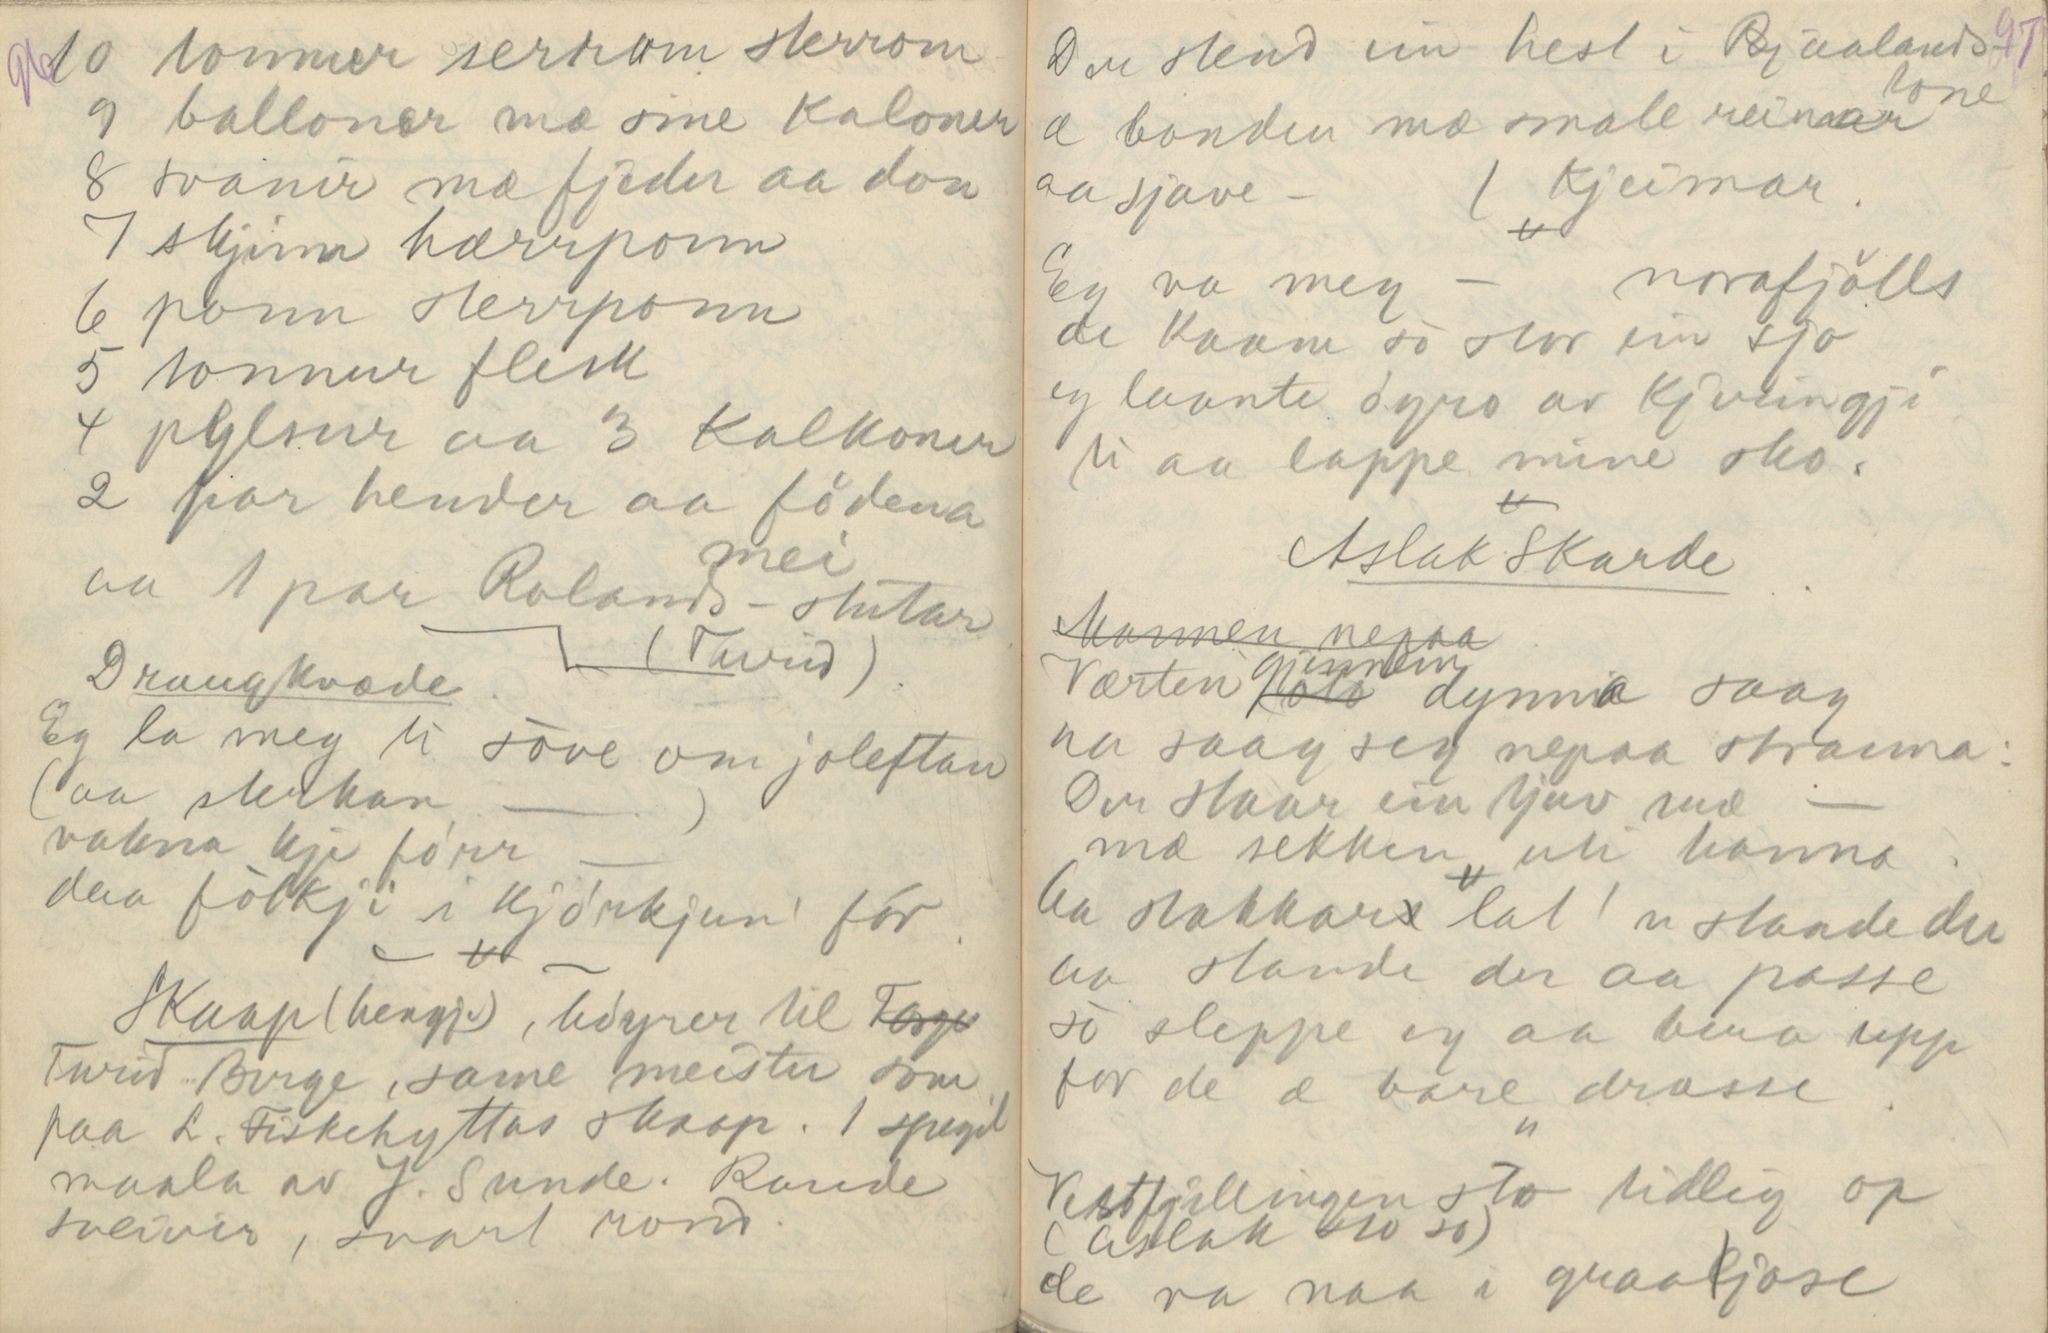 96
10 tonner serrom sterrom
9 balloner mæ sine Kaloner
8 svanir mæ fjeder aa don
7 skjinn hærrponn
6 ponn sterrponn
5 tonnur flesk
4 pylsur aa 3 Kalkoner
2 par hender aa födena
mei
aa 1 par Rolands-stutar
(Turid)
Draugkvæde
Eg la meg ti söve om joleftan
(aa sterkan — )
vakna kje förr —
daa fölkji i kjörkjun' för.
Skaap (hengje), höyrer til Targe
Turid Borge, same meister som
paa L. Fiskehyttas skaap. 1 spegil
maala av J. Sunde. Runde
sveiver, svart rond.
97
Der stend ein hest i Bjaalands-
tone
æ bonden mæ smale reimar
aa sjave - ( Kjeimar.
Eg va meg — norafjölls
de kaam so stor ein sjo
eg laante öyro av Kjeringji
ti aa lappe mine sko.
Aslak Skarde
Mannen nepaa
gjenom
Værten dynnia saag
han saag seg nepaa strauna:
Der staar ein tjuv mæ —
mæ sekken uti hanna.
Aa stakkare lat 'n stande der
aa stande der aa passe
so sleppe eg aa bera upp
for de æ bare drasse.
"
Vestfjellingen sto tidleg op
(Aslak sto so)
de va naa i graaljose